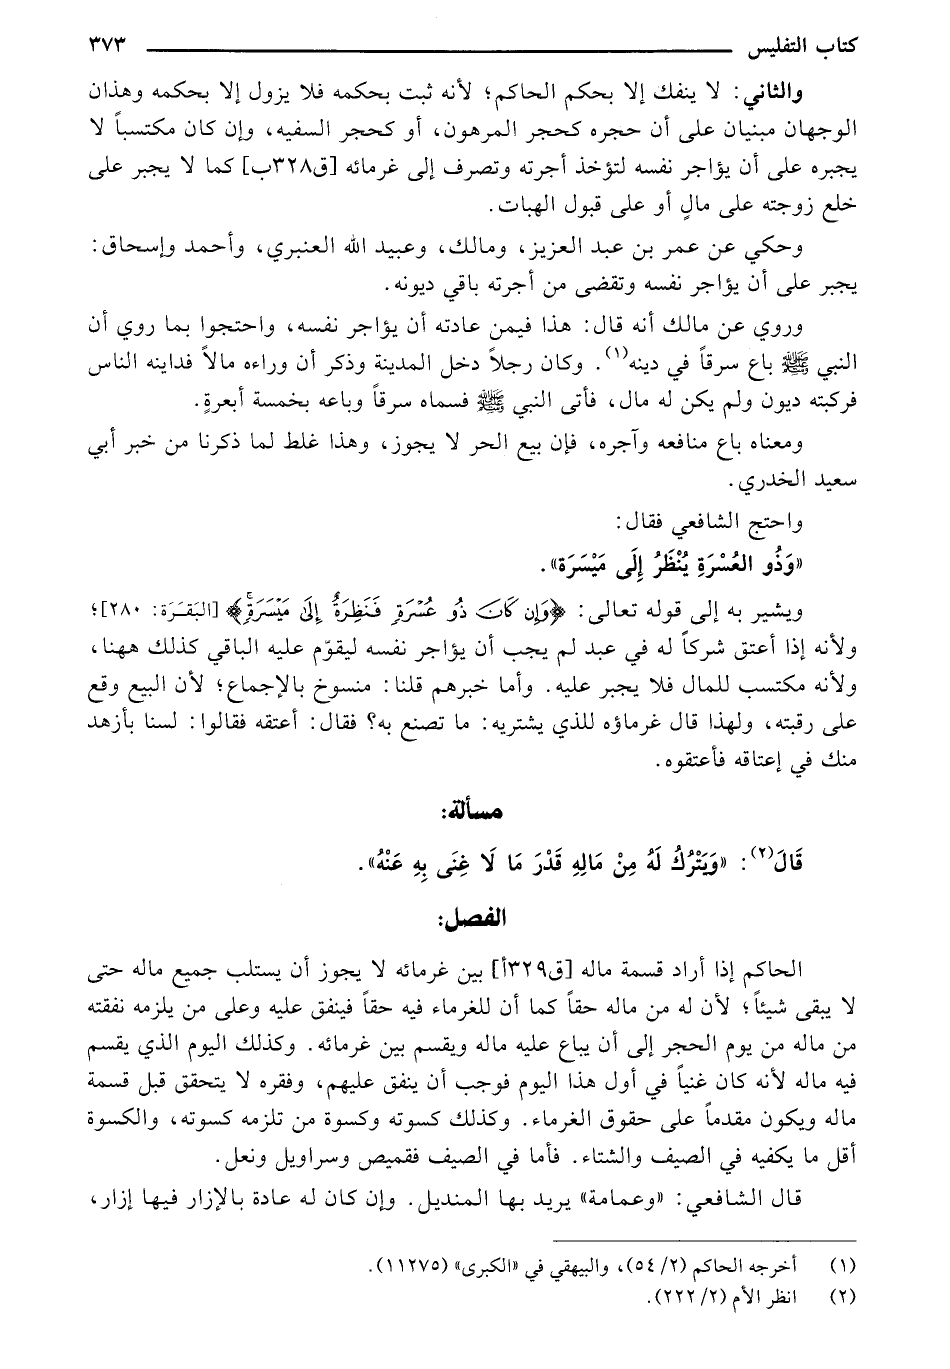 كتاب التفليس ٣٧٣
والثاني: لا ينفك إلا بحكم الحاكم؛ لأنه ثبت بحكمه فلا يزول إلا بحكمه وهذان
الوجهان مبنيان على أن حجره كحجر المرهون، أو كحجر السفيه، وإن كان مكتسباً لا
يجبره على أن يؤاجر نفسه لتؤخذ أجرته وتصرف إلى غرمائه [ق٣٢٨ب] كما لا يجبر على
خلع زوجته على مالٍ أو على قبول الهبات.
وحكي عن عمر بن عبد العزيز، ومالك، وعبيد الله العنبري، وأحمد وإسحاق:
يجبر على أن يؤاجر نفسه وتقضى من أجرته باقي ديونه.
وروي عن مالك أنه قال: هذا فيمن عادته أن يؤاجر نفسه، واحتجوا بما روي أن
النبي ﷺ باع سرقاً في دينه(١). وكان رجلاً دخل المدينة وذكر أن وراءه مالاً فداينه الناس
فركبته ديون ولم يكن له مال، فأتى النبي ﷺ فسماه سرقاً وباعه بخمسة أبعرةٍ.
ومعناه باع منافعه وآجره، فإن بيع الحر لا يجوز، وهذا غلط لما ذكرنا من خبر أبي
سعيد الخدري.
واحتج الشافعي فقال:
«وَذُو العُسْرَةِ يُنْظَرُ إِلَى مَيْسَرَة».
ويشير به إلى قوله تعالى: ﴿وَإِن كَانَ ذُو عُسْرَةٍ فَنَظِرَةٌ إِلَىٰ مَيْسَرَةٍ﴾ [البَقَرَة: ٢٨٠]؛
ولأنه إذا أعتق شركاً له في عبد لم يجب أن يؤاجر نفسه ليقوّم عليه الباقي كذلك ههنا،
ولأنه مكتسب للمال فلا يجبر عليه. وأما خبرهم قلنا: منسوخ بالإجماع؛ لأن البيع وقع
على رقبته، ولهذا قال غرماؤه للذي يشتريه: ما تصنع به؟ فقال: أعتقه فقالوا: لسنا بأزهد
منك في إعتاقه فأعتقوه.
مسألة:
قَالَ(٢): «وَيَتْرُكُ لَهُ مِنْ مَالِهِ قَدْرَ مَا لَا غِنَى بِهِ عَنْهُ».
الفصل:
الحاكم إذا أراد قسمة ماله [ق٣٢٩أ] بين غرمائه لا يجوز أن يستلب جميع ماله حتى
لا يبقى شيئاً؛ لأن له من ماله حقاً كما أن للغرماء فيه حقاً فينفق عليه وعلى من يلزمه نفقته
من ماله من يوم الحجر إلى أن يباع عليه ماله ويقسم بين غرمائه. وكذلك اليوم الذي يقسم
فيه ماله لأنه كان غنياً في أول هذا اليوم فوجب أن ينفق عليهم، وفقره لا يتحقق قبل قسمة
ماله ويكون مقدماً على حقوق الغرماء. وكذلك كسوته وكسوة من تلزمه كسوته، والكسوة
أقل ما يكفيه في الصيف والشتاء. فأما في الصيف فقميص وسراويل ونعل.
قال الشافعي: «وعمامة» يريد بها المنديل. وإن كان له عادة بالإزار فيها إزار،
(١) أخرجه الحاكم (٢/ ٥٤)، والبيهقي في «الكبرى» (١١٢٧٥).
(٢) انظر الأم (٢/ ٢٢٢).